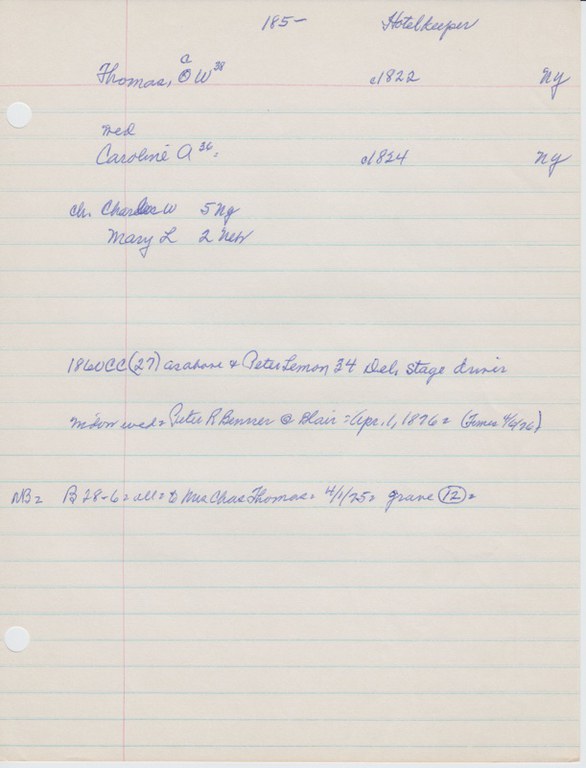 185- Hotelkeeper
C
Thomas, O W 38 c1822 Ny
med
Caroline A 36. c1824 Ny
ch. Charles W 5 Ny
Mary L 2 Neb
1860 CC (27) as above & Peter Lemon 34 Del, stage driver
wed = Peter R Benner @ Blair = Apr. 1, 1876 = (Times 4/6/76)
NB = B 28-6 = all = to Mrs Chas Thomas = 4/1/25 = grave 12 =